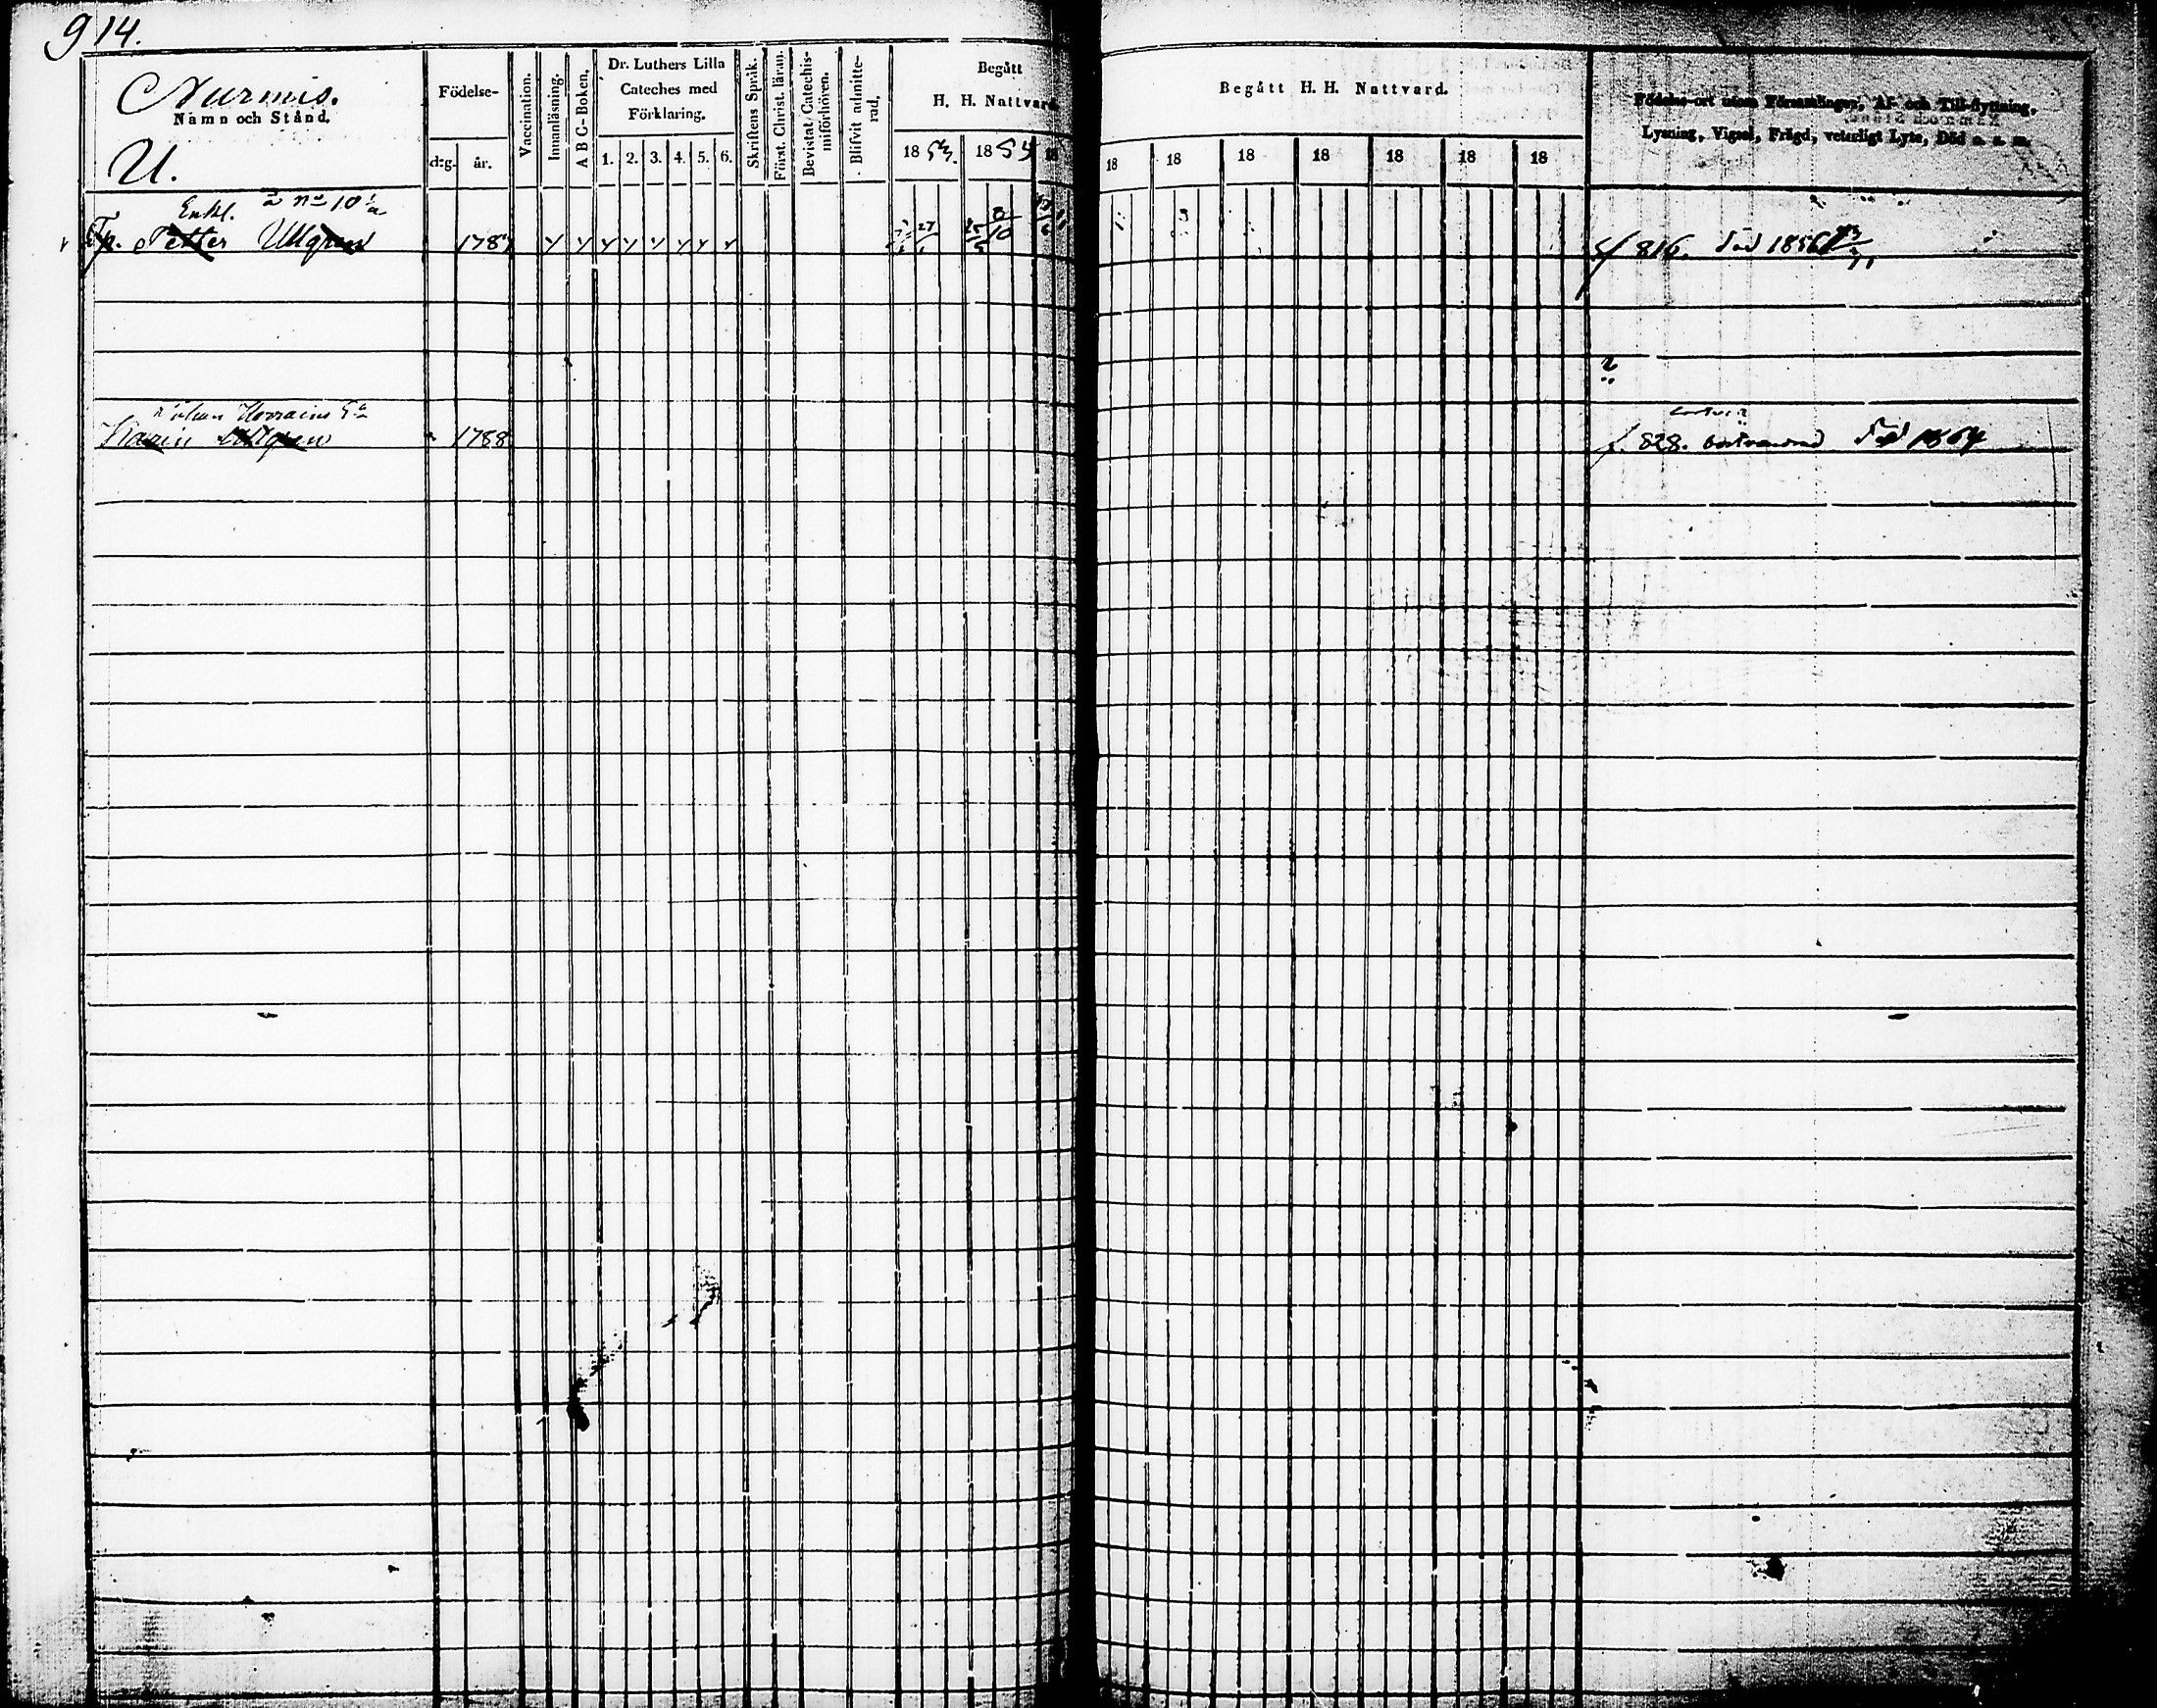 914.
Nurmis.
Namn och Stånd.
U.
Födelse-
dag- år.
Vaccination.
Innanläsning.
A B C-Boken.
Dr. Luthers Lilla
Cateches med
Förklaring.
1. 2. 3. 4. 5. 6.
Skriftens Språk.
Först. Christ. läran.
Bevistat Catechis-
miförhören.
Blifvit admitte-
rad.
Begått
H. H. Nattvard
18 53. 18 54 18
Begått H. H. Nattvard.
18 18 18 18 18 18 18
Födelse-ort utom Församlingen, Af- och Till-flyttning,
Lysning, Vigsel, Frägd, veterligt Lyte, Död o. s. m.
Enkl.
Petter Ullgren 1787
f 816. död 1856
Karin Ullgren 1788
f. 828. död 1864